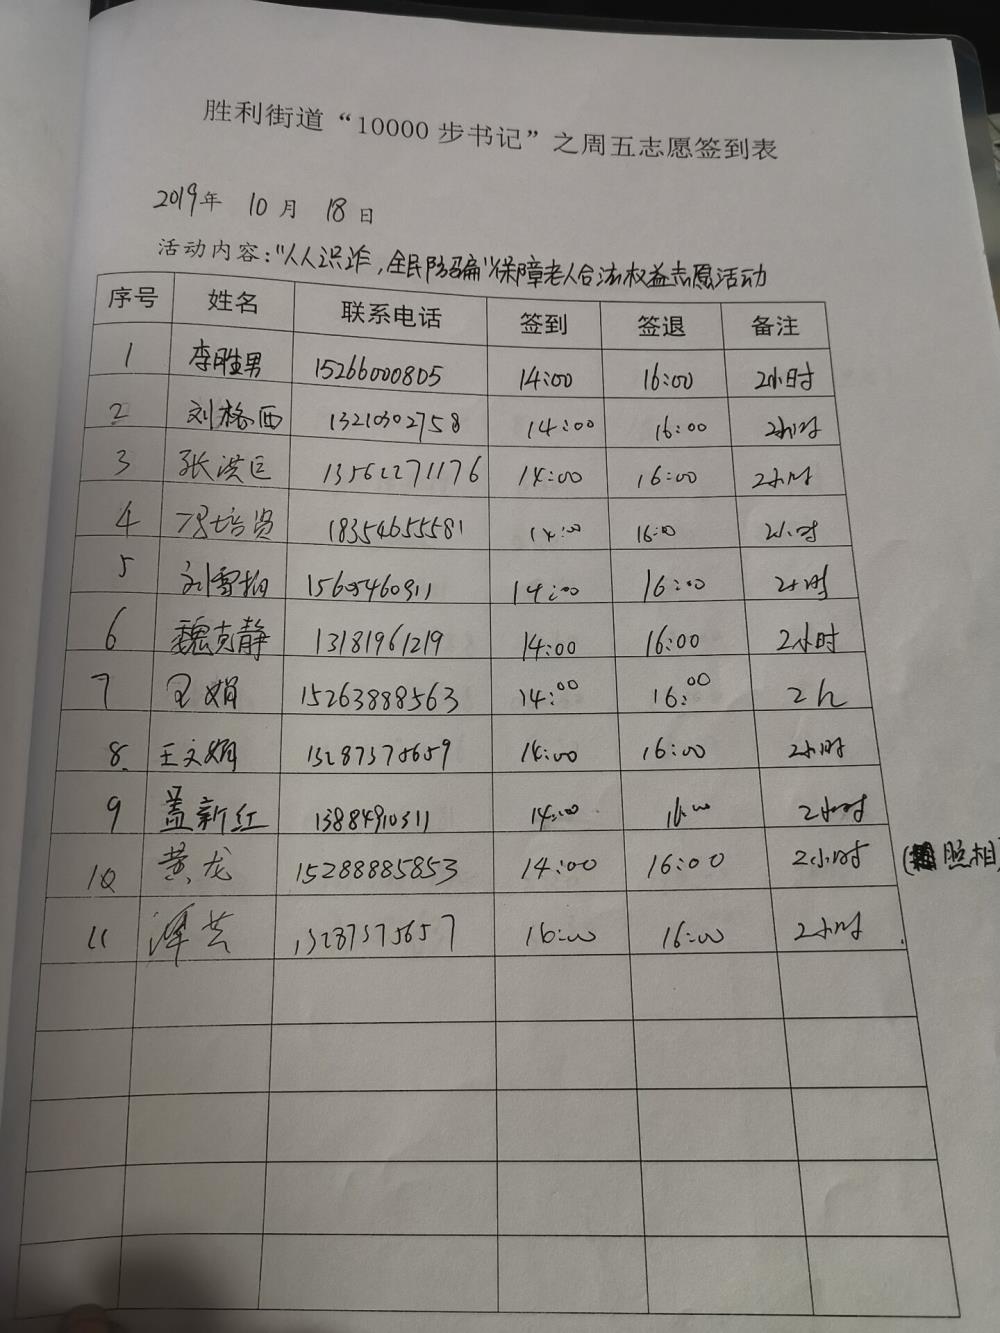 胜利街道“10000步书记”之周五志愿签到表
2019年 10月 18日
活动内容:“人人识诈,全民防骗”保障老人合法权益志愿活动
序号 姓名 联系电话 签到 签退 备注
1 李胜男 15266000805 14:00 16:00 2小时
2 刘格西 13210302758 14:00 16:00 2小时
3 张洪臣 13562271176 14:00 16:00 2小时
4 18354655581 14:00 16:00 2小时
5 14:00 16:00 2小时
6 魏克静 13181961219 14:00 16:00 2小时
7 王娟 15263888563 14:00 16:00 2h
8. 王文娟 13287375659 14:00 16:00 2小时
9 盖新红 13884910311 14:00 16:00 2小时
10 黄龙 15288885853 14:00 16:00 2小时 (照相)
11 13287375657 16:00 16:00 2小时